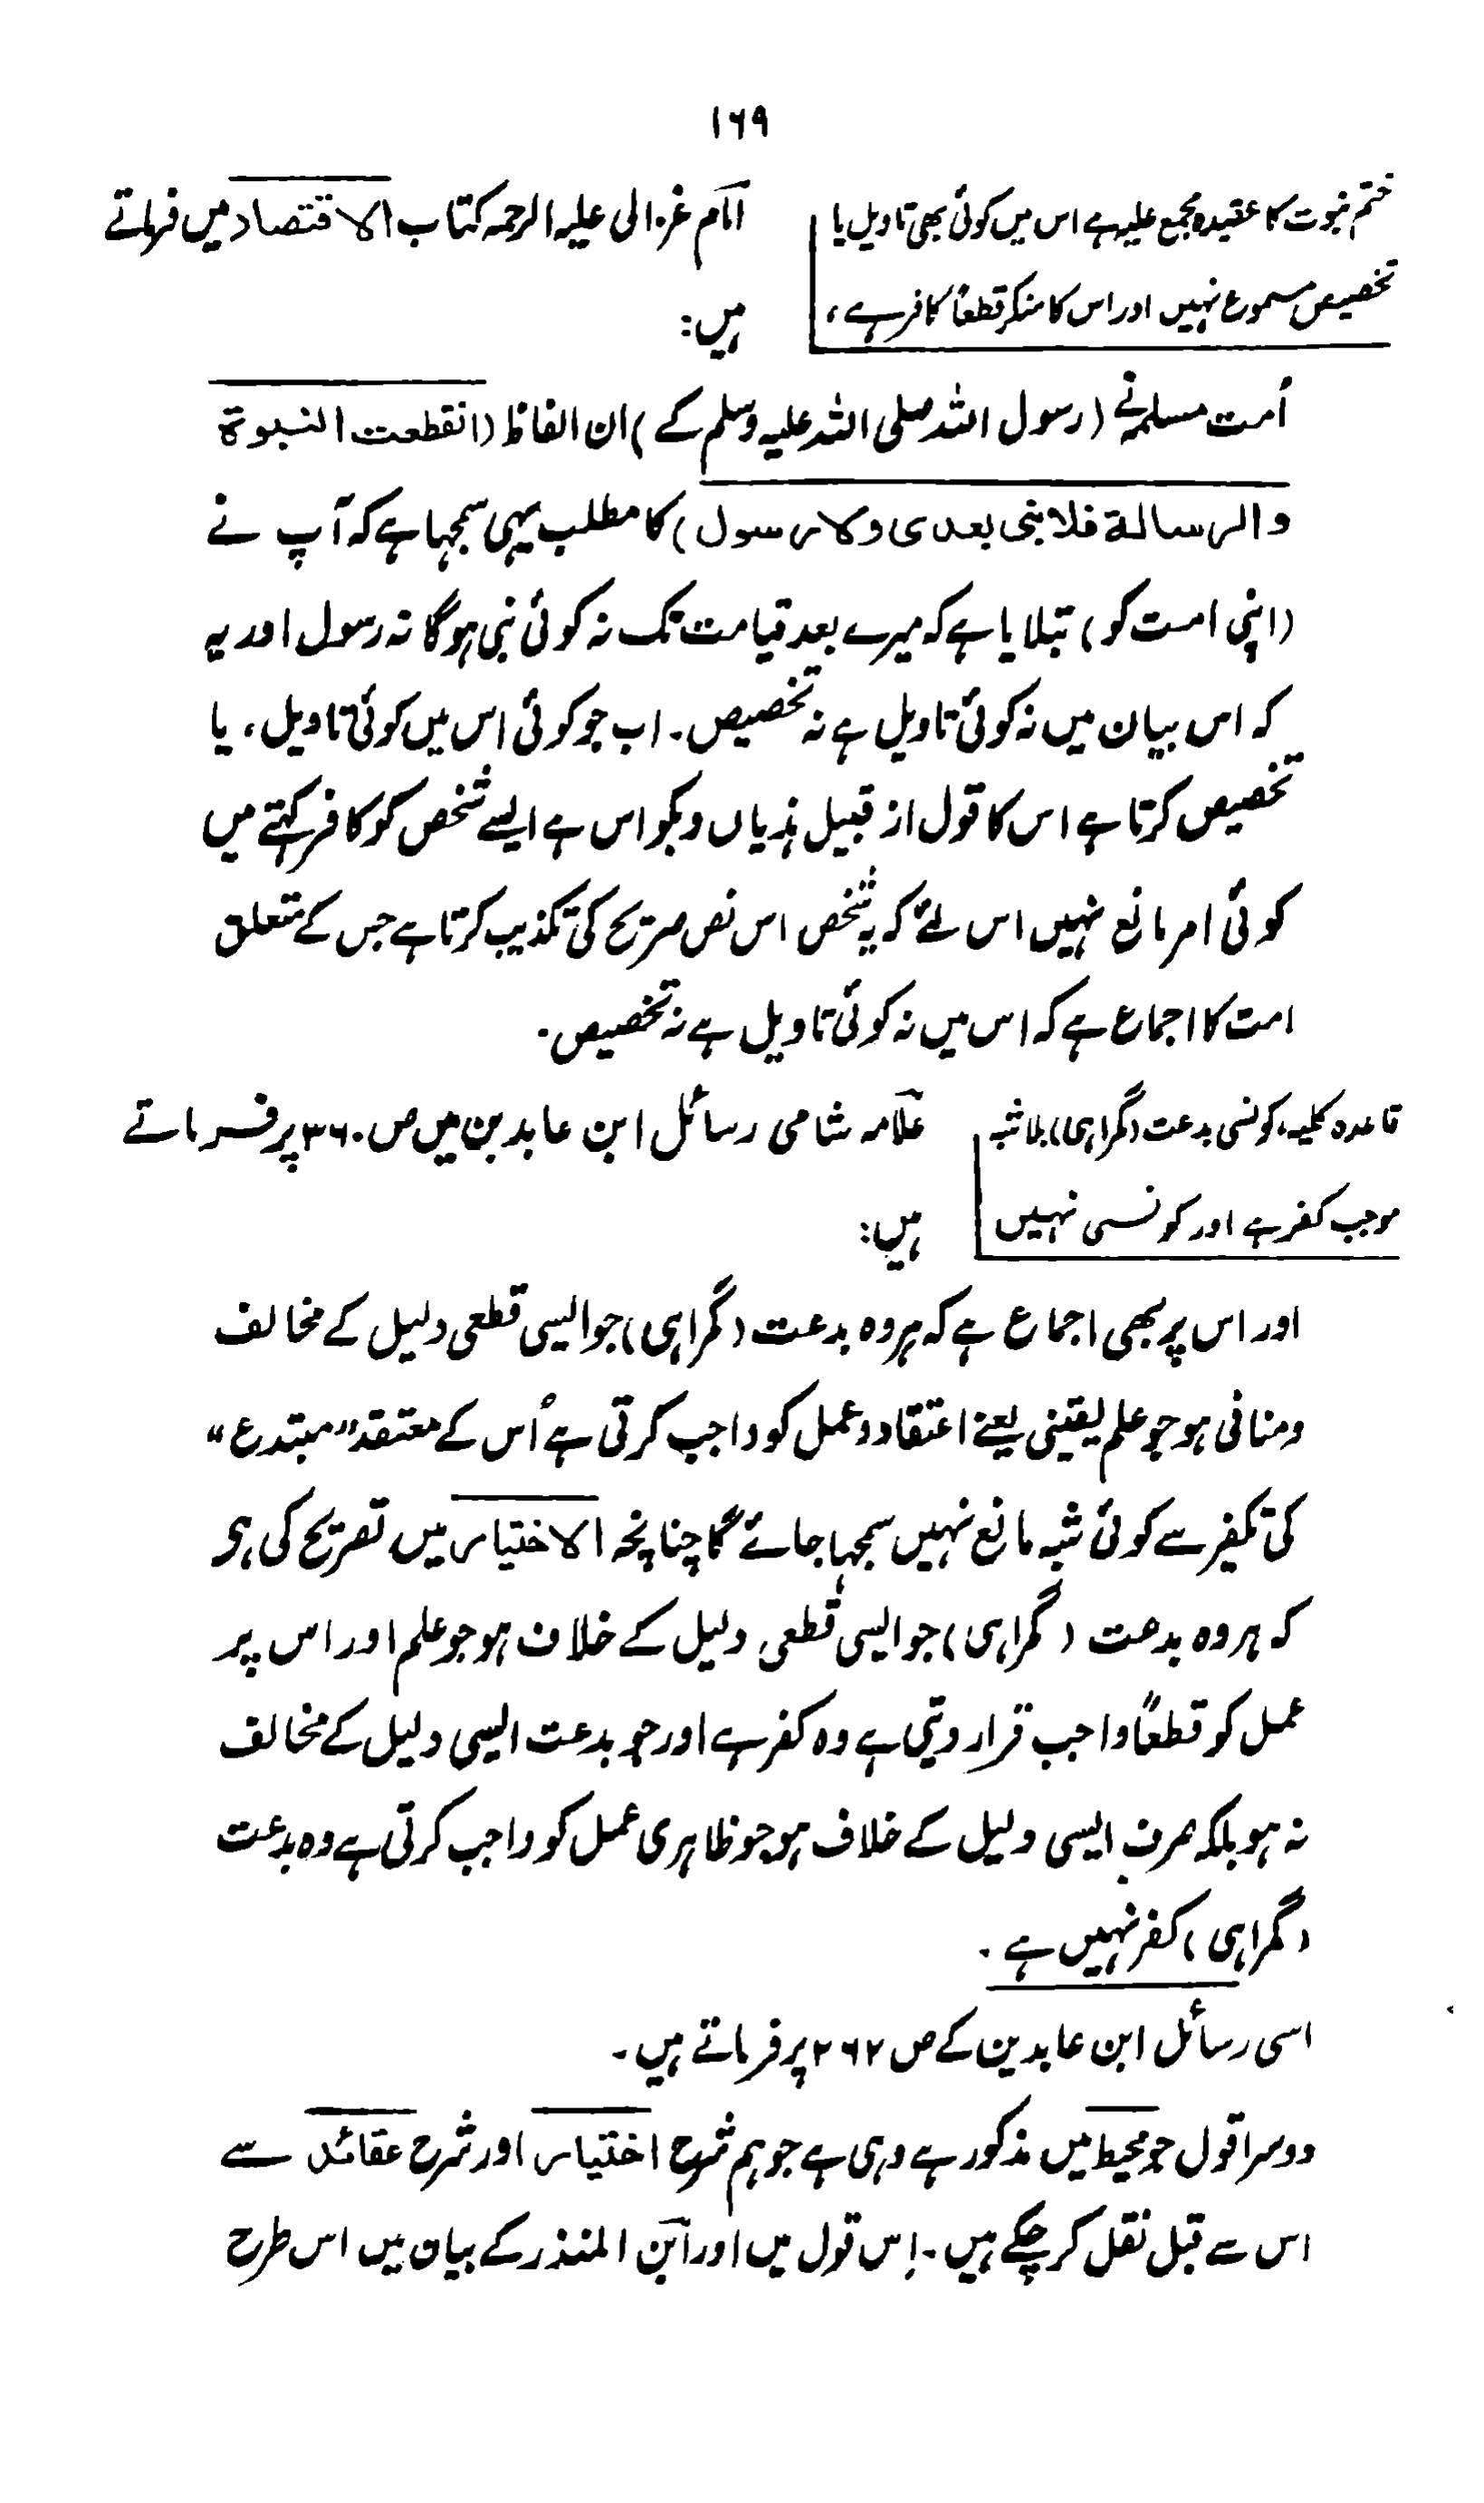 ۱۶۹
ختم نبوت کا عقیدہ مجمع علیہ ہے اس میں کوئی بھی تاویل یا
تخصیص مسموع نہیں اور اس کا منکر قطعاً کافر ہے،
امام غزالی علیہ الرحمہ کتاب الاقتصاد میں فرماتے
ہیں:
اُمت مسلمہ نے (رسول اللہ صلی اللہ علیہ وسلم کے) ان الفاظ (انقطعت النبوۃ
والرسالۃ فلا نبی بعدی ولا رسول) کا مطلب یہی سمجہا ہے کہ آپ نے
(اپنی امت کو) بتلایا ہے کہ میرے بعد قیامت تک نہ کوئی نبی ہوگا نہ رسول اور یہ
کہ اس بیان میں نہ کوئی تاویل ہے نہ تخصیص۔ اب جو کوئی اس میں کوئی تاویل، یا
تخصیص کرتا ہے اس کا قول از قبیل ہذیاں و بکواس ہے ایسے شخص کو کافر کہنے میں
کوئی امر مانع نہیں اس لئے کہ یہ شخص اس نص صریح کی تکذیب کرتا ہے جس کے متعلق
امت کا اجماع ہے کہ اس میں نہ کوئی تاویل ہے نہ تخصیص۔
قاعدہ کلیہ، کونسی بدعت (گمراہی) بلاشبہ
موجب کفر ہے اور کونسی نہیں
علامہ شامی رسائل ابن عابدین میں ص ۳۶۰ پر فرماتے
ہیں:
اور اس پر بھی اجماع ہے کہ ہر وہ بدعت (گمراہی) جو ایسی قطعی دلیل کے مخالف
ومنافی ہو جو علم یقینی یعنے اعتقاد و عمل کو واجب کرتی ہے اُس کے معتقد "مبتدع"
کی تکفیر سے کوئی شبہ مانع نہیں سمجہا جائے گا چنانچہ الاختیار میں تصریح کی ہو
کہ ہر وہ بدعت (گمراہی) جو ایسی قطعی دلیل کے خلاف ہو جو علم اور اس پر
عمل کو قطعاً واجب قرار دیتی ہے وہ کفر ہے اور جو بدعت ایسی دلیل کے مخالف
نہ ہو بلکہ صرف ایسی دلیل کے خلاف ہو جو ظاہری عمل کو واجب کرتی ہے وہ بدعت
(گمراہی) کفر نہیں ہے۔
اسی رسائل ابن عابدین کے ص ۲۶۲ پر فرماتے ہیں۔
دوسرا قول جو محیط میں مذکور ہے وہی ہے جو ہم شرح اختیار اور شرح عقائد سے
اس سے قبل نقل کر چکے ہیں۔ اِس قول میں اور ابن المنذر کے بیان میں اس طرح